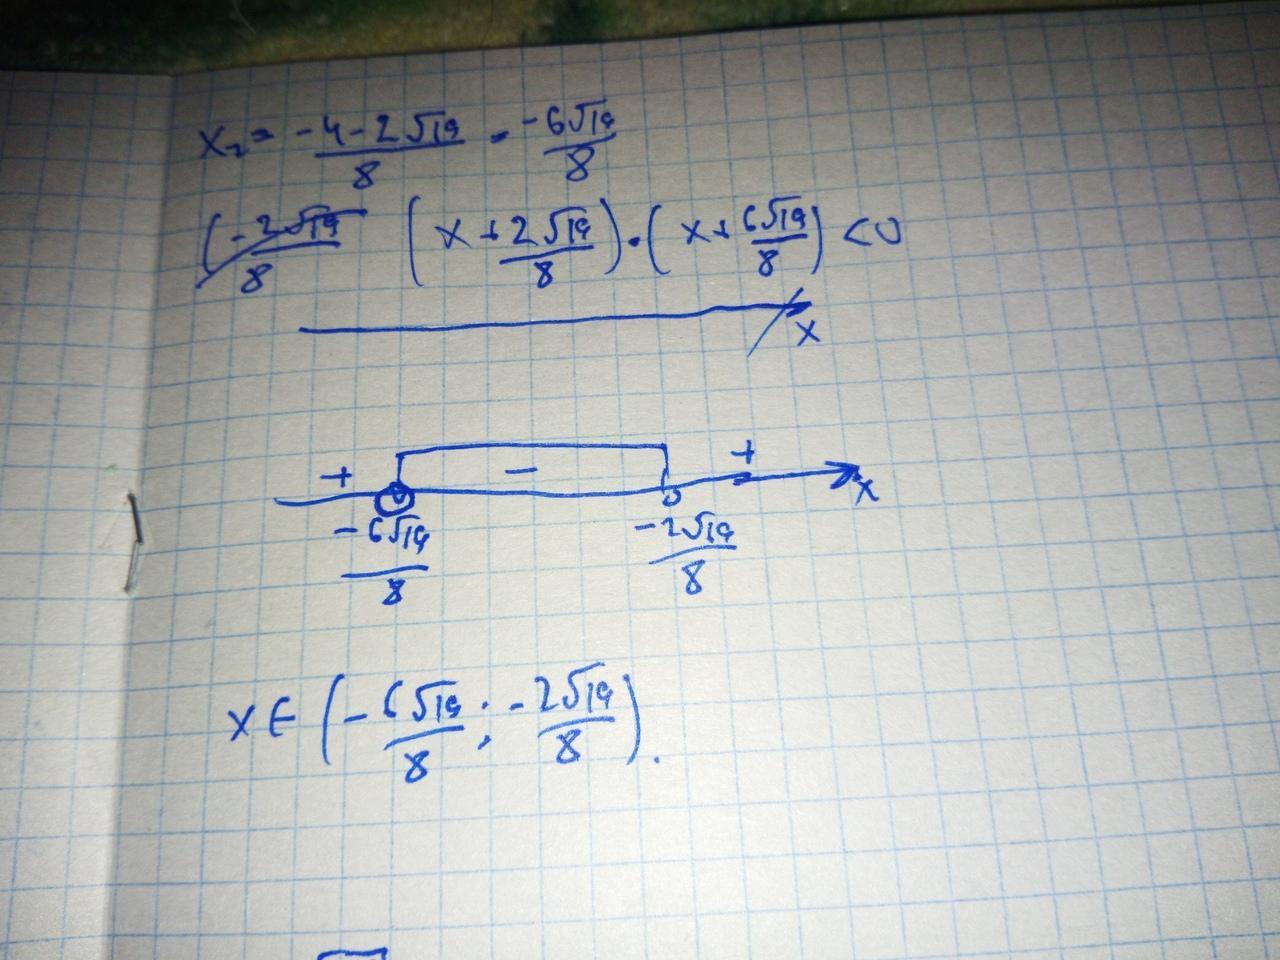 x₂ = (-4-2√19)/8 = (-6√19)/8
(-2√19/8 (x+2√19/8)·(x+6√19/8) <0
x
+ − + x
-6√19/8 -2√19/8
x∈(-6√19/8; -2√19/8).